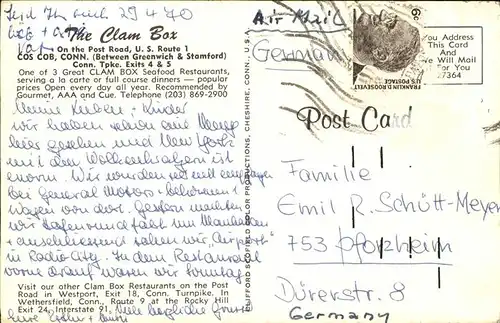 The Clam Box
On the Post Road, U. S. Route 1
COS COB, CONN. (Between Greenwich & Stamford)
Conn. Tpke. Exits 4 & 5
One of 3 Great CLAM BOX Seafood Restaurants,
serving a la carte or full course dinners — popular
prices Open every day all year. Recommended by
Gourmet, AAA and Cue. Telephone (203) 869-2900
Meine lieben Kinder
wir haben schon eine Menge
hier gesehen und New York
mit den Wolkenkratzern ist
enorm. Wir wurden
bei General Motors
wagen von dort. Gestern machten
wir Hafenrundfahrt um Manhattan
+ anschliessend sahen wir "Airport"
in Radio City. In dem Restaurant
vorne drauf waren wir Sonntag
Visit our other Clam Box Restaurants on the Post
Road in Westport, Exit 18, Conn. Turnpike. In
Wethersfield, Conn., Route 9 at the Rocky Hill
Exit 24, Interstate 91.
Viele herzliche Grüsse
CLIFFORD SCOFIELD COLOR PRODUCTIONS, CHESHIRE, CONN., U.S.A.
Air Mail
Germany
6c
FRANKLIN D. ROOSEVELT
U.S. POSTAGE
You Address
This Card
And
We Will Mail
For You
27364
Post Card
Familie
Emil R. Schütt-Meyer
753 Pforzheim
Dürerstr. 8
Germany